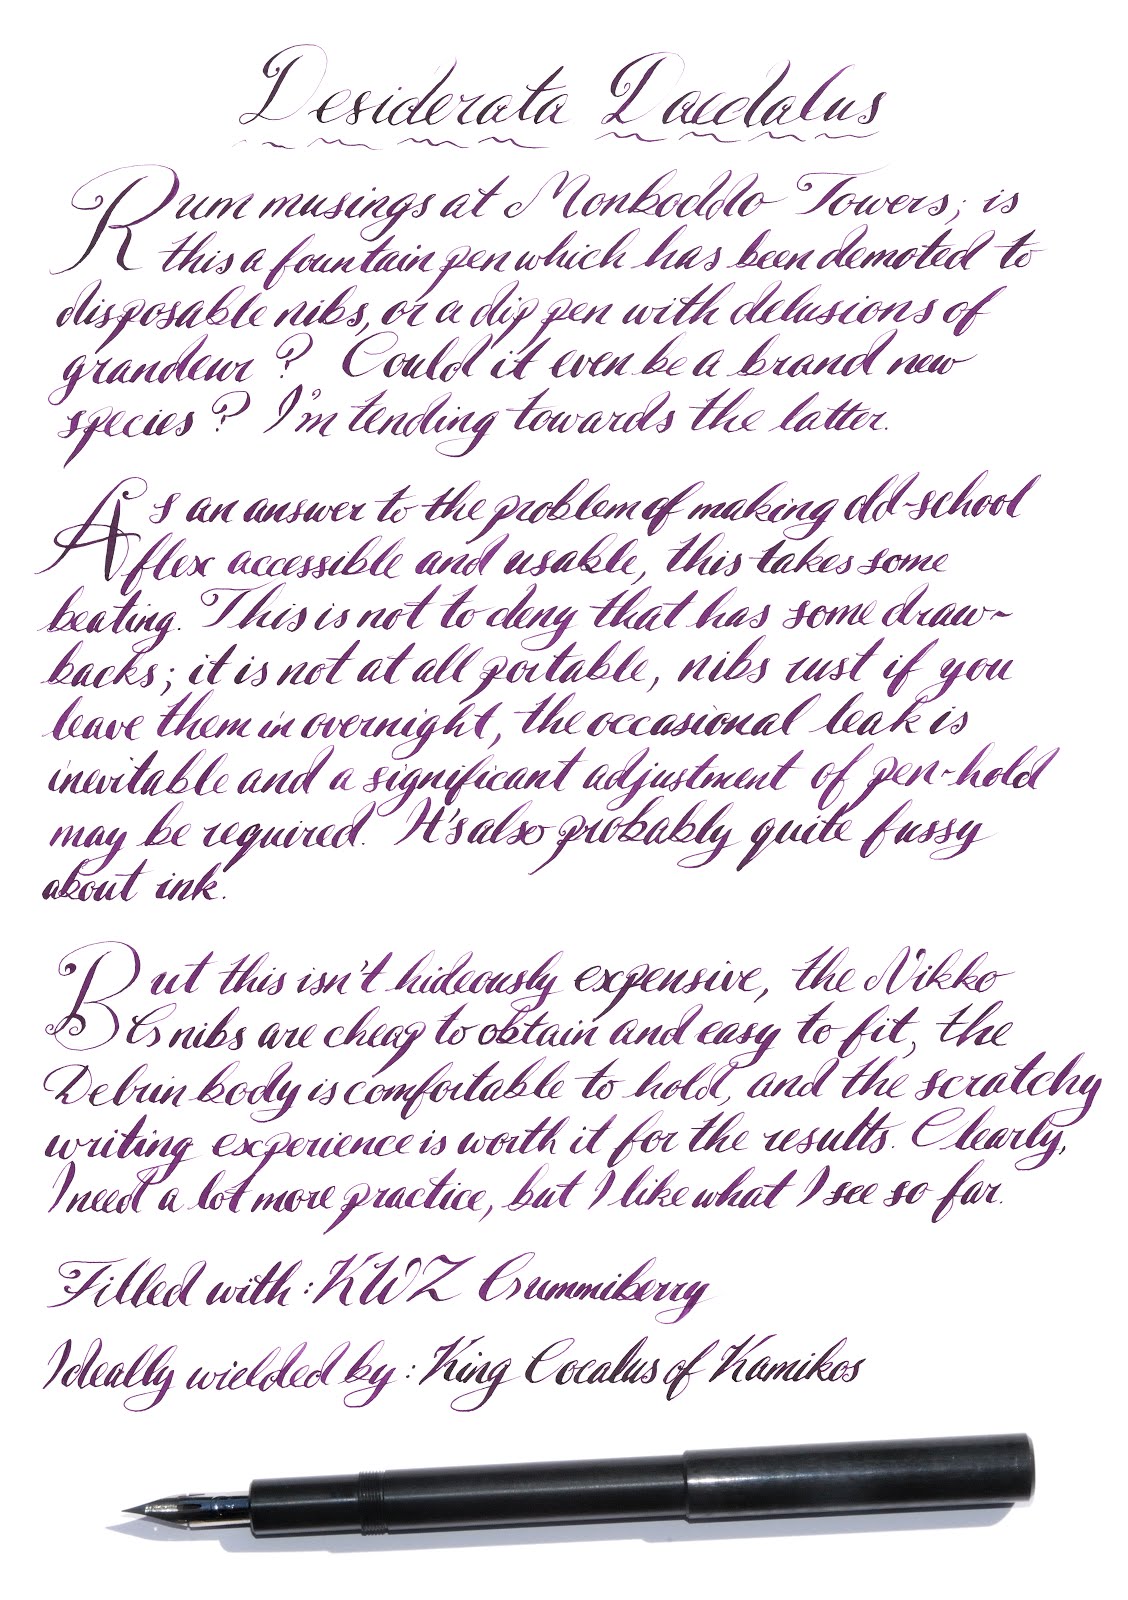 Desiderata Daedalus
Rum musings at Monboddo Towers; is
this a fountain pen which has been demoted to
disposable nibs, or a dip pen with delusions of
grandeur? Could it even be a brand new
species? I'm tending towards the latter.
As an answer to the problem of making old-school
flex accessible and usable, this takes some
beating. This is not to deny that has some draw-
backs; it is not at all portable, nibs rust if you
leave them in overnight, the occasional leak is
inevitable and a significant adjustment of pen-hold
may be required. It's also probably quite fussy
about ink.
But this isn't hideously expensive, the Nikko
G nibs are cheap to obtain and easy to fit, the
Delrin body is comfortable to hold, and the scratchy
writing experience is worth it for the results. Clearly,
I need a lot more practice, but I like what I see so far.
Filled with: KWZ Gummiberry
Ideally wielded by: King Cocalus of Kamikos